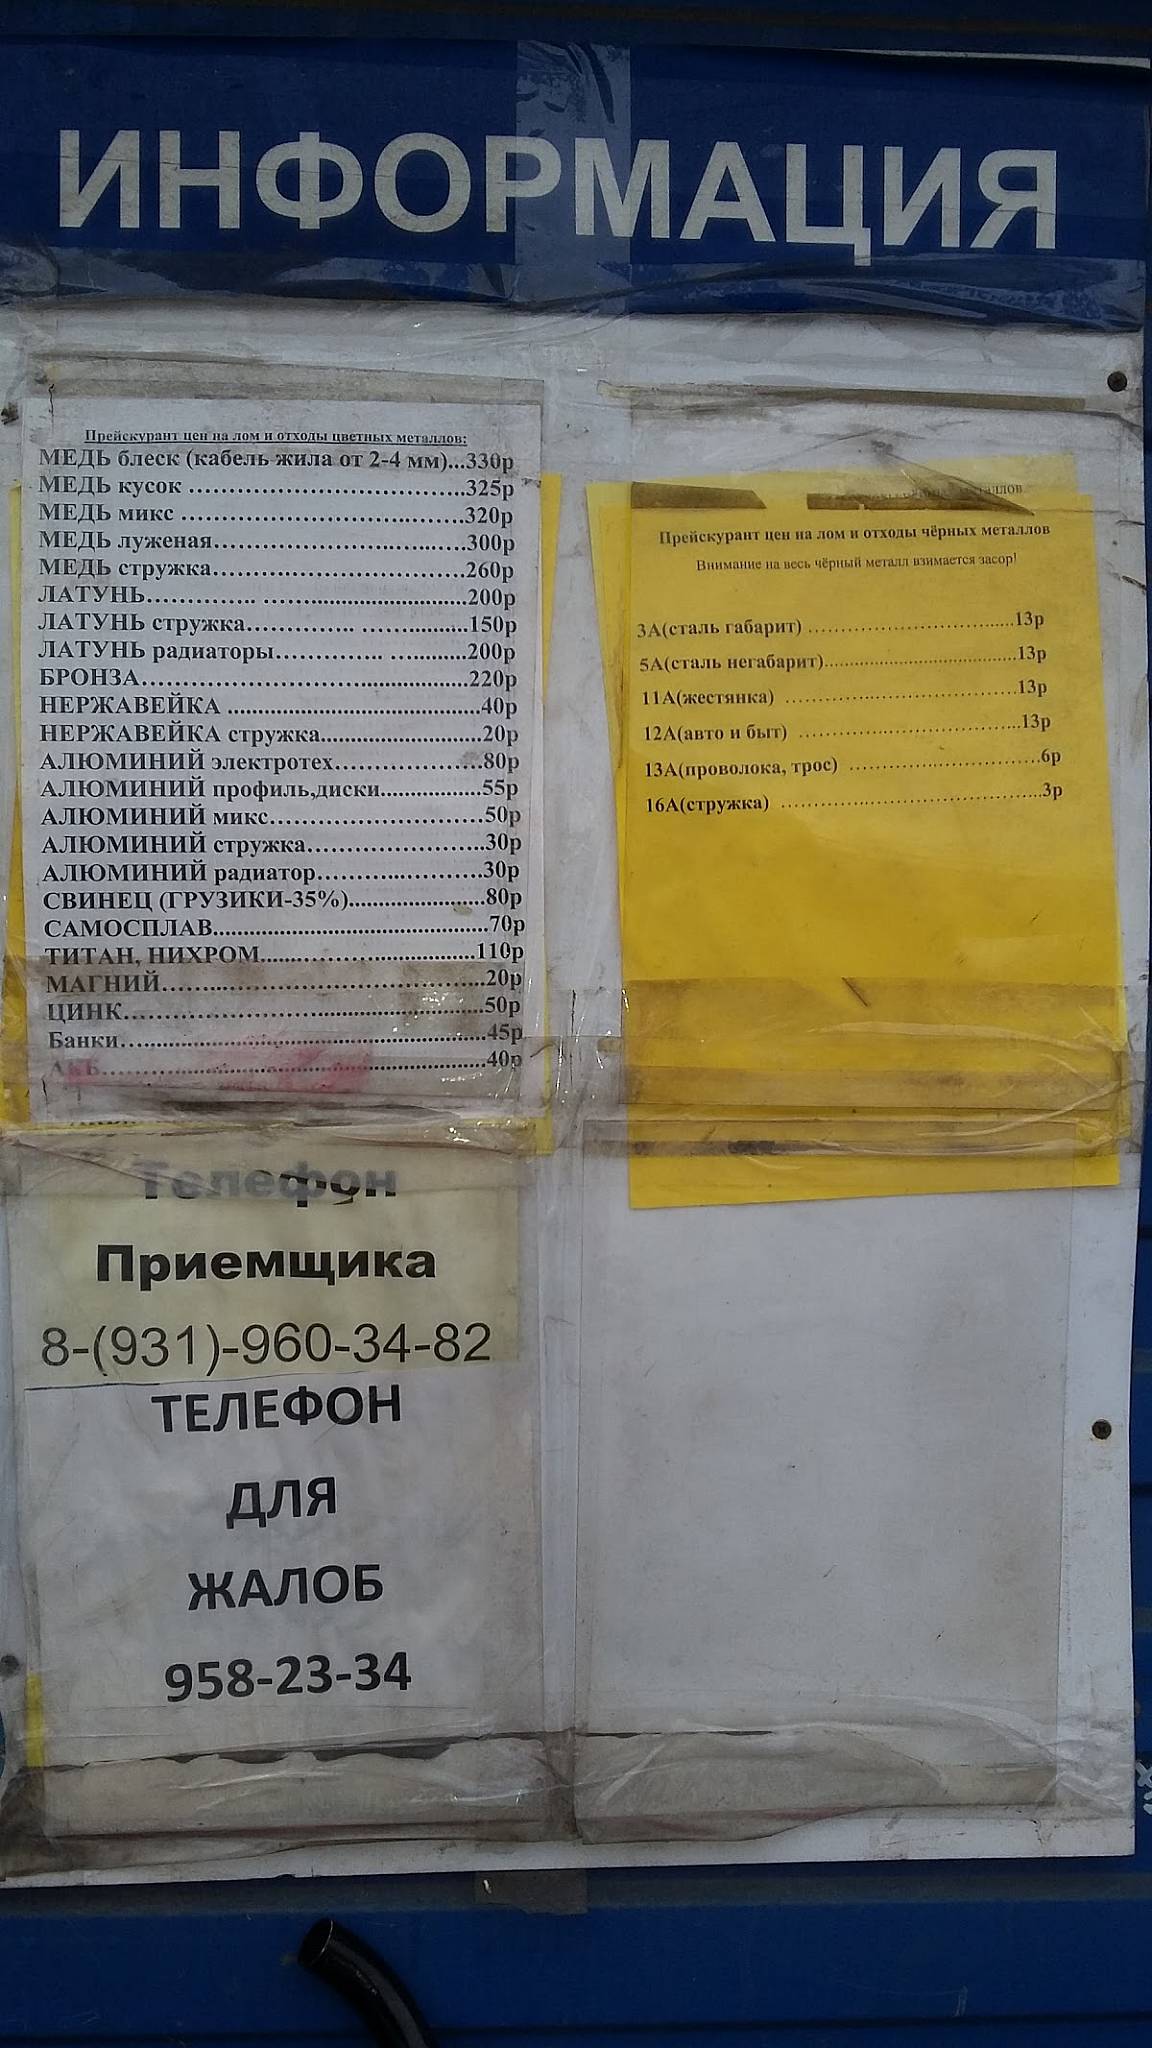 ИНФОРМАЦИЯ
Прейскурант цен на лом и отходы цветных металлов:
МЕДЬ блеск (кабель жила от 2-4 мм)...330р
МЕДЬ кусок ...............................325р
МЕДЬ микс ................................320р
МЕДЬ луженая.............................300р
МЕДЬ стружка.............................260р
ЛАТУНЬ.............. ............................200р
ЛАТУНЬ стружка.............. ..............150р
ЛАТУНЬ радиаторы.............. ...........200р
БРОНЗА........................................220р
НЕРЖАВЕЙКА ................................40р
НЕРЖАВЕЙКА стружка......................20р
АЛЮМИНИЙ электротех.....................80р
АЛЮМИНИЙ профиль,диски................55р
АЛЮМИНИЙ микс.............................50р
АЛЮМИНИЙ стружка........................30р
АЛЮМИНИЙ радиатор.......................30р
СВИНЕЦ (ГРУЗИКИ-35%)....................80р
САМОСПЛАВ...................................70р
ТИТАН, НИХРОМ.............................110р
МАГНИЙ........................................20р
ЦИНК............................................50р
Банки............................................45р
АКБ..............................................40р
металлов
Прейскурант цен на лом и отходы чёрных металлов
Внимание на весь чёрный металл взимается засор!
3А(сталь габарит) ..............................13р
5А(сталь негабарит)............................13р
11А(жестянка) ..................................13р
12А(авто и быт) .................................13р
13А(проволока, трос) .........................6р
16А(стружка) ...................................3р
Телефон
Приемщика
8-(931)-960-34-82
ТЕЛЕФОН
ДЛЯ
ЖАЛОБ
958-23-34